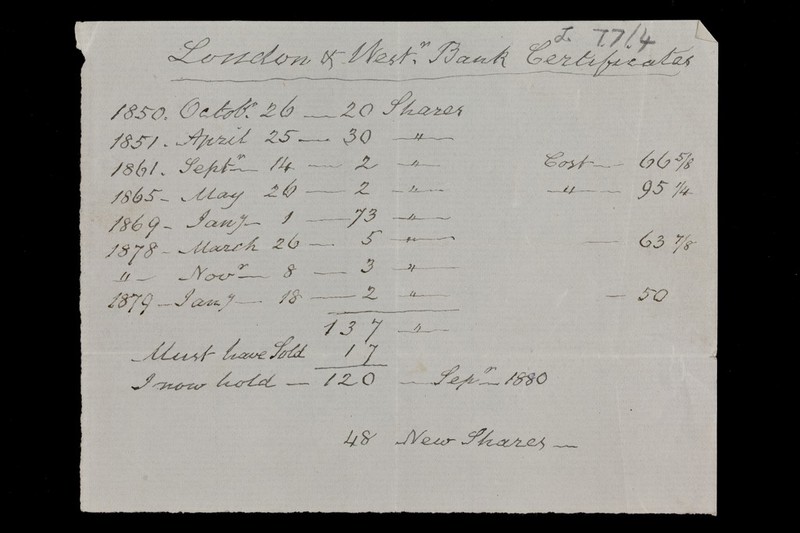 L. 77/4
London & West.r Bank Certificates
1850. Octob.r 26 — 20 Shares
1851. April 25 — 30 — " —
1861. Sept.r — 14 — 2 — " — Cost — 66 5/8
1865 — May 26 — 2 — " — — " — 95 1/4
1869 — Jany — 1 — 73 — " —
1878 — March 26 — 5 — " — — 63 7/8
" — Nov.r — 8 — 3 — " —
1879 — Jany — 18 — 2 — " — — 50
137 — " —
Must have Sold 17
I now hold — 120 — Sep.r — 1880
48 New Shares —